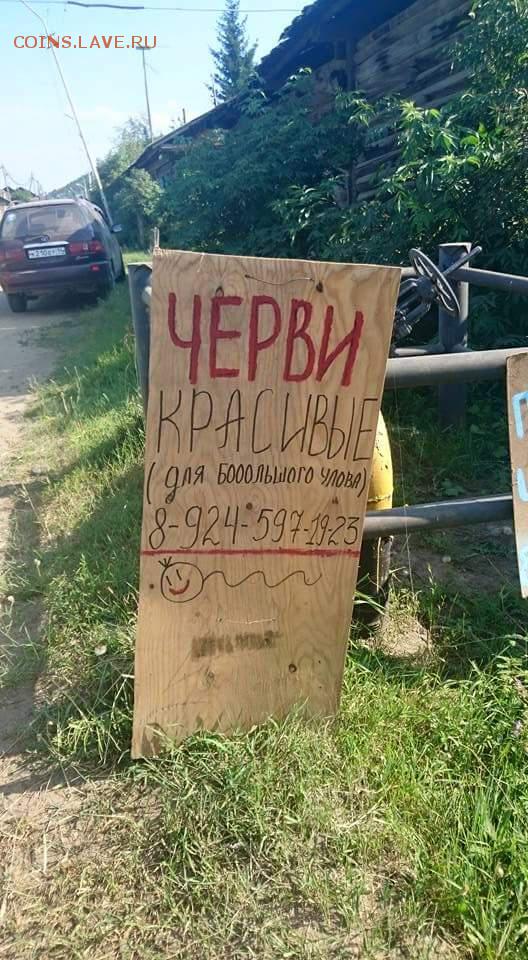 COINS.LAVE.РУ
ЧЕРВИ
КРАСИВЫЕ
(для БОООЛЬШОГО УЛОВА)
8-924-597-19-23